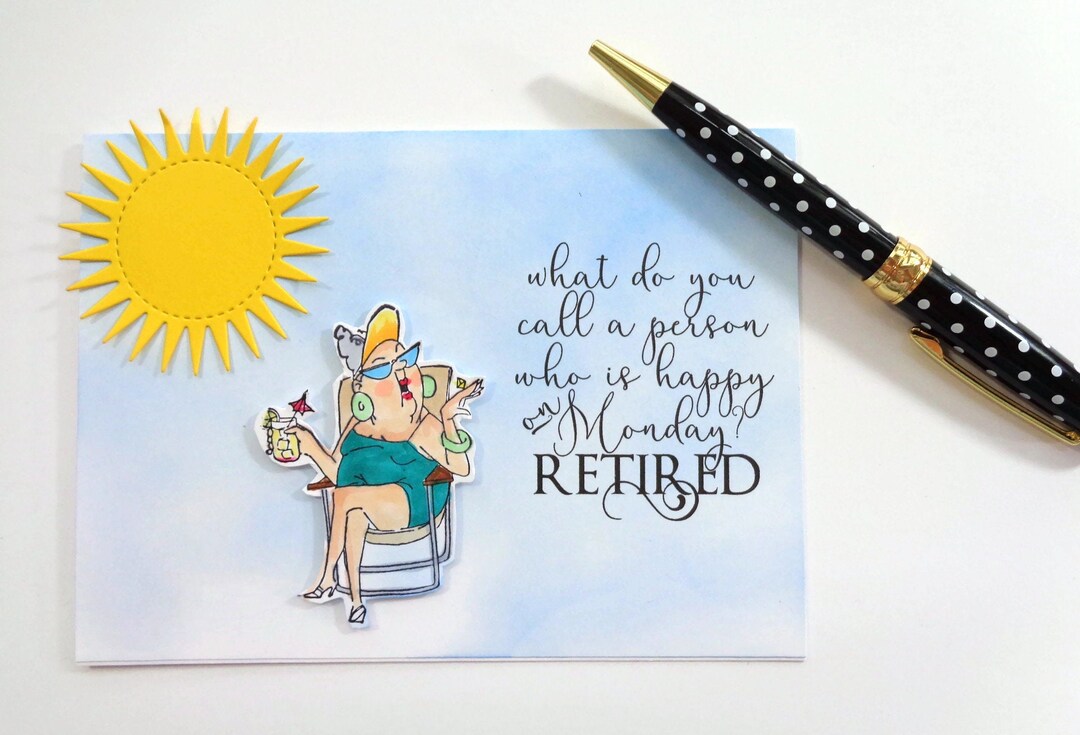 what do you
call a person
who is happy
on Monday?
RETIRED